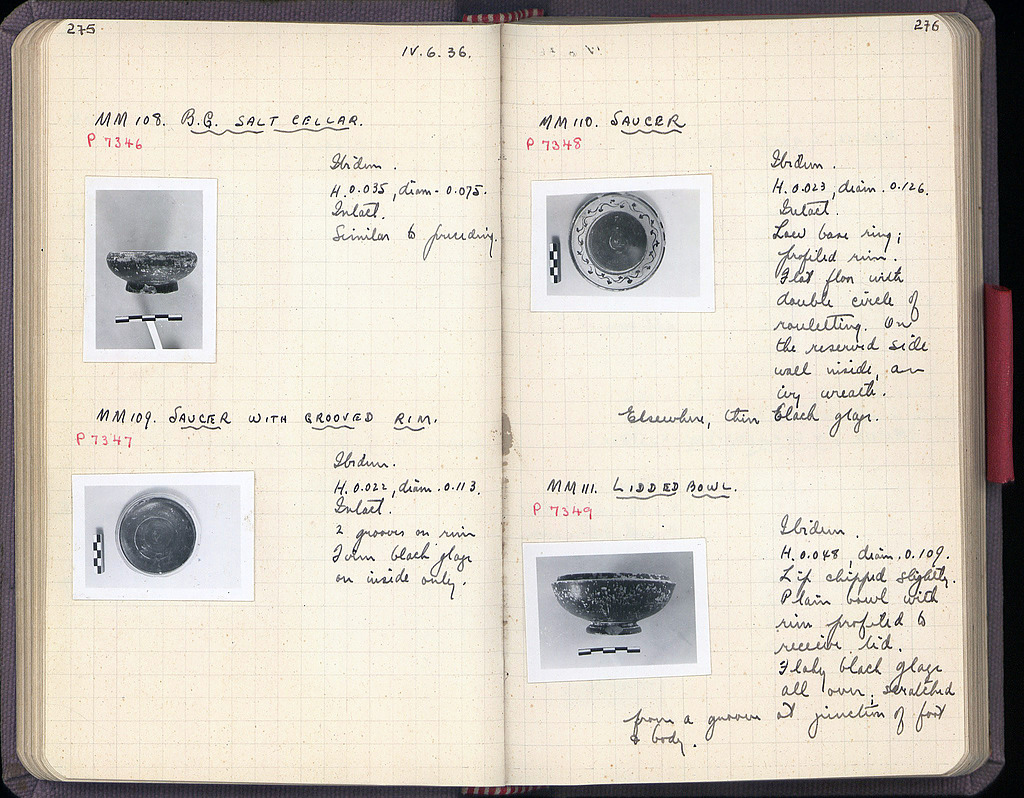 275
IV.6.36.
MM 108. B.G. SALT CELLAR.
P 7346
Ibidem.
H. 0.035, diam- 0.075.
Intact.
Similar to preceding.
MM 109. SAUCER WITH GROOVED RIM.
P 7347
Ibidem.
H. 0.022, diam. 0.113.
Intact.
2 grooves on rim
Thin black glaze
on inside only.
276
MM 110. SAUCER
P 7348
Ibidem.
H. 0.023, diam. 0.126.
Intact.
Low base ring;
profiled rim.
Flat floor with
double circle of
rouletting. On
the reserved side
wall inside, an
ivy wreath.
Elsewhere, thin black glaze.
MM 111. LIDDED BOWL.
P 7349
Ibidem.
H. 0.048, diam. 0.109.
Lip chipped slightly.
Plain bowl with
rim profiled to
receive lid.
Flaky black glaze
all over; scratched
from a groove at junction of foot
& body.